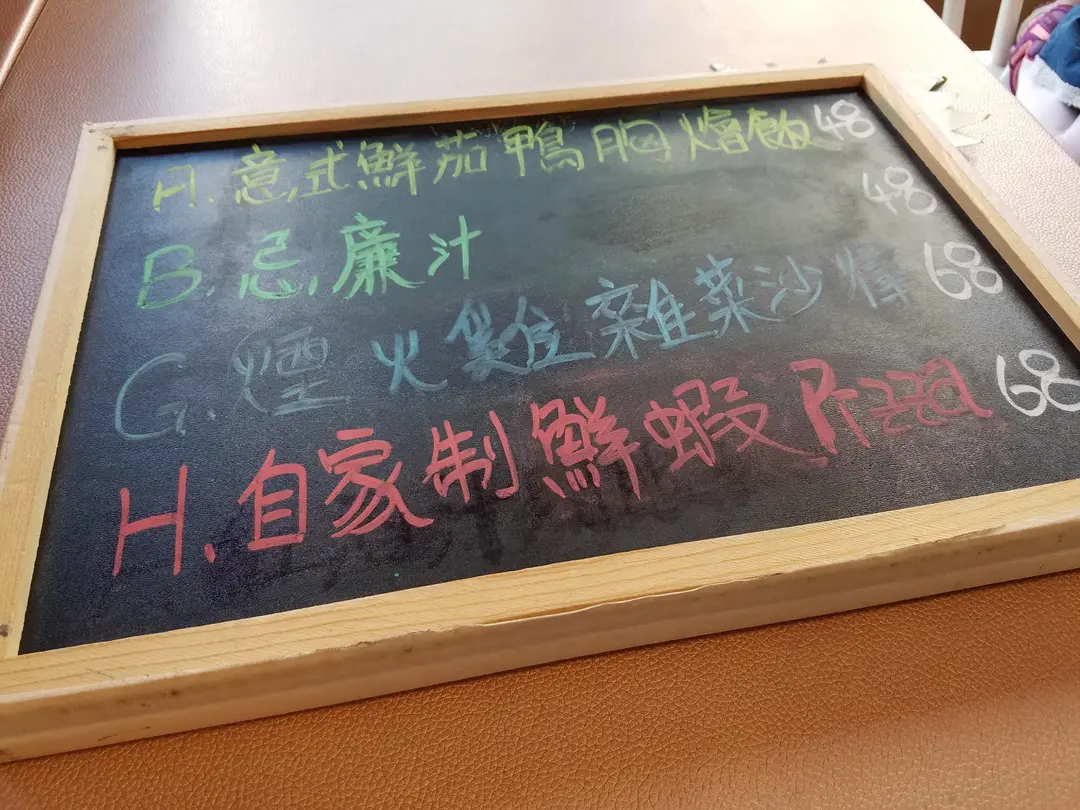 A. 意式鮮茄鴨胸燴飯 48
B. 忌廉汁 48
G. 煙火雞雜菜沙律 68
H. 自家制鮮蝦Pizza 68